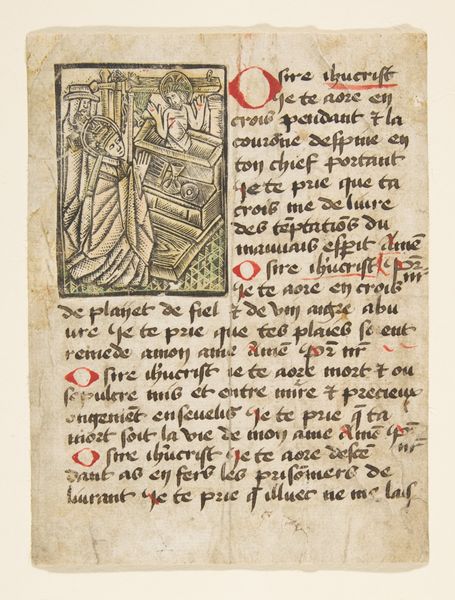 O sire ihũcrist
Je te aore en
crois pendant & la
couronne despine en
ton chief portant
Je te prie que ta
crois me deliure
des tẽptatiõs du
mauuais esp̃it Amẽ
O sire ihũcrist Je pr̃ nr̃
Je te aore en crois
de plaiiet de fiel & de vin aigre abu
ure Je te prie que tes plaies soient
remede a mon ame Amẽ pr̃ nr̃
O sire ihũcrist Je te aore mort & ou
sepulcre mis et entre mire & precieux
ongement enseuelis Je te prie q̃ ta
mort soit la vie de mon ame Amẽ pr̃ nr̃
O sire ihũcrist Je te aore descẽ
dant as enfers les prisõniers de
liurant Je te prie q̃ illuec ne me lais